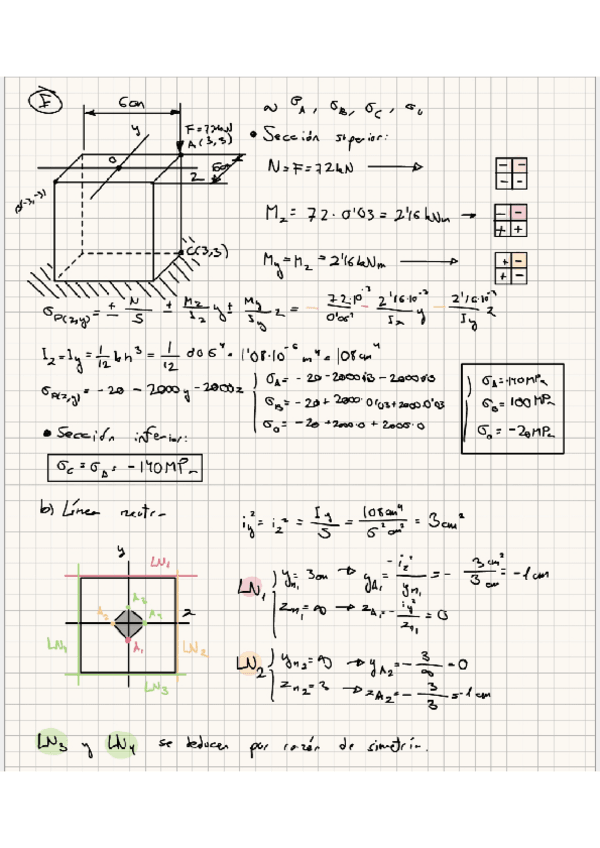 F
6cm
F=72kN
y
A(3,3)
0
6cm
z
B(-3,-3)
C(3,3)
~ σA, σB, σC, σ0
• Sección superior:
N=F=72kN →
Mz = 72·0'03 = 2'16 kNm →
My=Mz = 2'16 kNm →
σP(z,y) = ± N/S ± Mz/Iz y ± My/Iy z = - 72·10⁻³/0'06² - 2'16·10⁻³/Iz y - 2'16·10⁻³/Iy z
Iz=Iy = 1/12 bh³ = 1/12 0'06⁴ = 1'08·10⁻⁶ m⁴ = 108cm⁴
σP(z,y) = -20 - 2000y - 2000z
σA = -20 - 2000·0'03 - 2000·0'03
σB = -20 + 2000·0'03 + 2000·0'03
σ0 = -20 + 2000·0 + 2000·0
σA = -140 MPa
σB = 100 MPa
σ0 = -20 MPa
• Sección inferior:
σC = σA = -140 MPa
b) Línea neutra
iy² = iz² = Iy/S = 108cm⁴/6²cm² = 3cm²
y
LN1
z
LN4
LN2
A3
A2
A4
A1
LN3
LN1
yn1 = 3cm → yA1 = -iz²/yn1 = - 3cm²/3cm = -1cm
zn1 = ∞ → zA1 = -iy²/zn1 = 0
LN2
yn2 = ∞ → yA2 = - 3/∞ = 0
zn2 = 3 → zA2 = - 3/3 = -1 cm
LN3 y LN4 se deducen por razón de simetría.